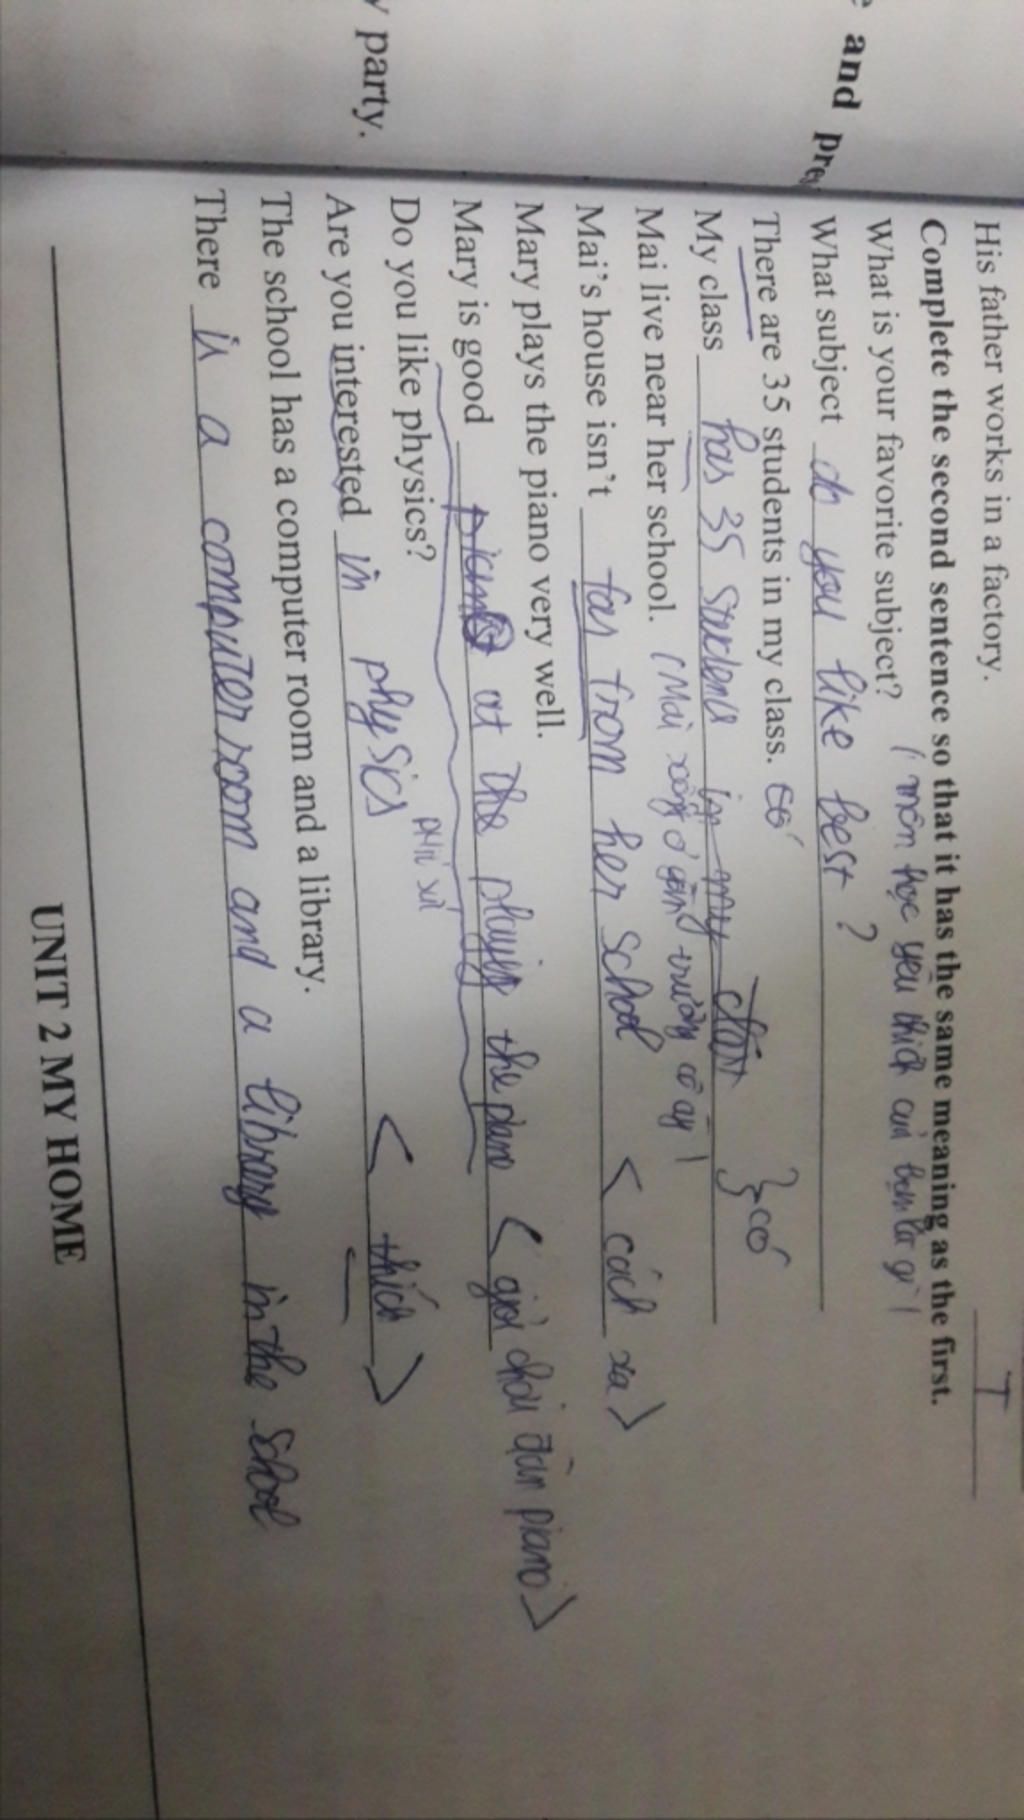 and pre
y party.
His father works in a factory. T
Complete the second sentence so that it has the same meaning as the first.
What is your favorite subject? (môn học yêu thích của bạn là gì)
What subject do you like best ?
There are 35 students in my class. có
My class has 35 students in my class } có
Mai live near her school. (Mai sống ở gần trường cô ấy)
Mai's house isn't far from her school < cách xa >
Mary plays the piano very well.
Mary is good at the playing the piano < giỏi chơi đàn piano >
Do you like physics?
Are you interested in physics < thích >
The school has a computer room and a library.
There is a computer room and a library in the school
UNIT 2 MY HOME